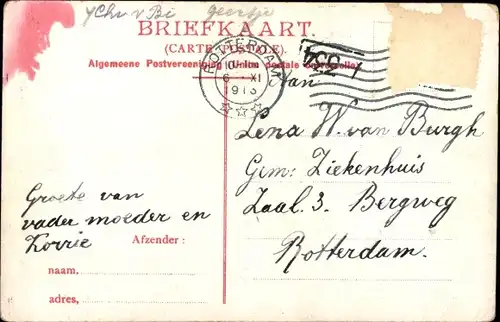 Geertje
BRIEFKAART
(CARTE POSTALE).
Algemeene Postvereeniging (Union postale universelle)
ROTTERDAM
6 XI
1913
Aan
Lena W. van Burgh
Gem: Ziekenhuis
Zaal. 3. Bergweg
Rotterdam.
Groete van
vader moeder en
Korrie
Afzender:
naam,
adres,